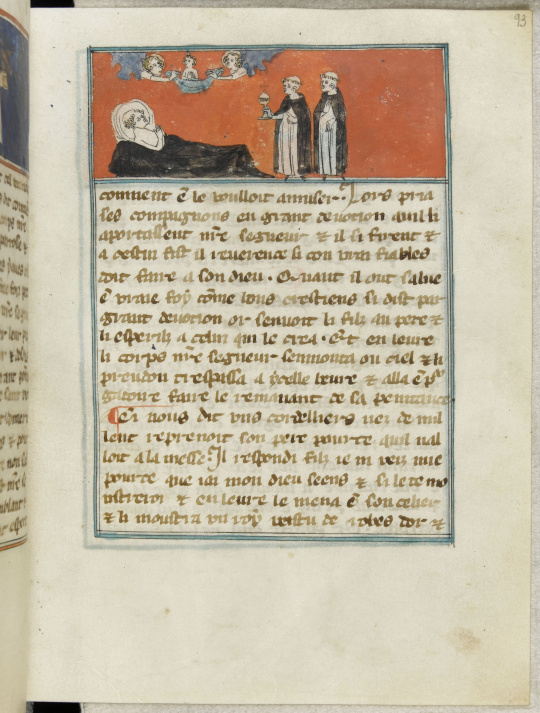 93
comment ẽ le vouloit amuser. Lors pria
ses compaignons en grant deuotion quil li
aportassent nr̃e segneur ⁊ il si firent ⁊
a destin fist il reuerence si con vrai fiables
doit faire a son dieu. Quant il out salue
ẽ vraie foy cõme bons crestiens si dist par
grant deuotion or senuoit li filz au pere ⁊
li esperilz a celui qui le crea. Et en leure
li corps nr̃e segneur senmonta ou ciel ⁊ li
preudon trespassa a ycelle heure ⁊ alla ẽ
faire le remanant de sa penitance
Ci nous dit vns cordelliers nez de mil
lent reprenoit son pere pource quil nal
loit a la messe. Il respondi filz ie ni veiz mie
pource que iai mon dieu seens ⁊ si le te mo
nstrerai ⁊ en leure le mena ẽ son celier
⁊ li moustra vn roy vestu de robes dor ⁊